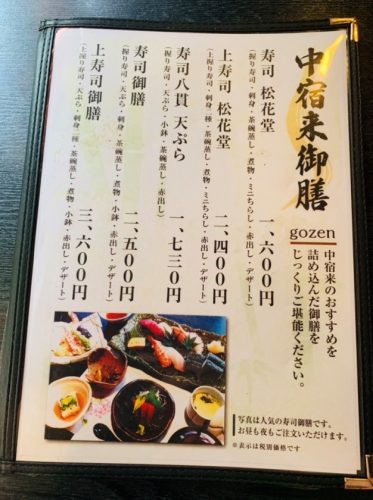 中宿来御膳
gozen
中宿来のおすすめを
詰め込んだ御膳を
じっくりご堪能ください。
寿司 松花堂
一、六〇〇円
(握り寿司・天ぷら・刺身・茶碗蒸し・煮物・ミニちらし・赤出し・デザート)
上寿司 松花堂
二、四〇〇円
(上握り寿司・天ぷら・刺身二種・茶碗蒸し・煮物・ミニちらし・赤出し・デザート)
寿司八貫 天ぷら
一、七三〇円
(握り寿司・天ぷら・小鉢・茶碗蒸し・赤出し)
寿司御膳
二、五〇〇円
(握り寿司・天ぷら・刺身・茶碗蒸し・煮物・小鉢・赤出し・デザート)
上寿司御膳
三、六〇〇円
(上握り寿司・天ぷら・刺身二種・茶碗蒸し・煮物・小鉢・赤出し・デザート)
写真は人気の寿司御膳です。
お昼も夜もご注文いただけます。
※表示は税別価格です